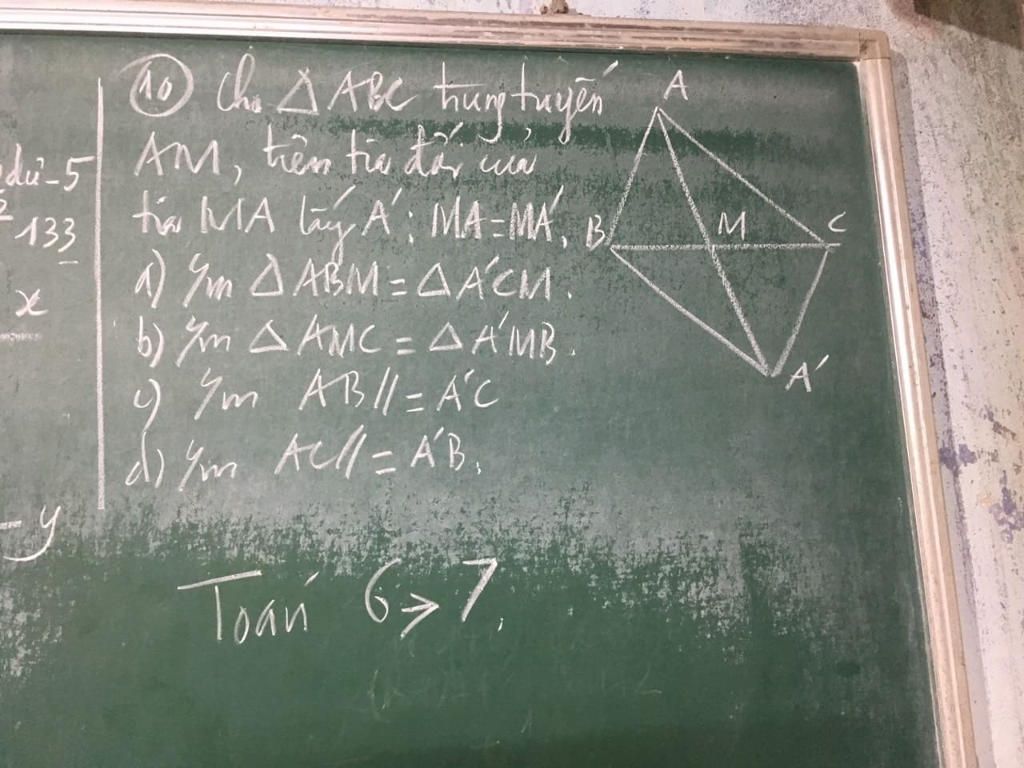 dư-5
2 133
x
- y
10 Cho △ABC trung tuyến
AM, trên tia đối của
tia MA lấy A': MA=MA'.
a) C/m △ABM = △A'CM.
b) C/m △AMC = △A'MB.
c) C/m AB//=A'C
d) C/m AC//=A'B.
A
B
M
C
A'
Toán 6→7.